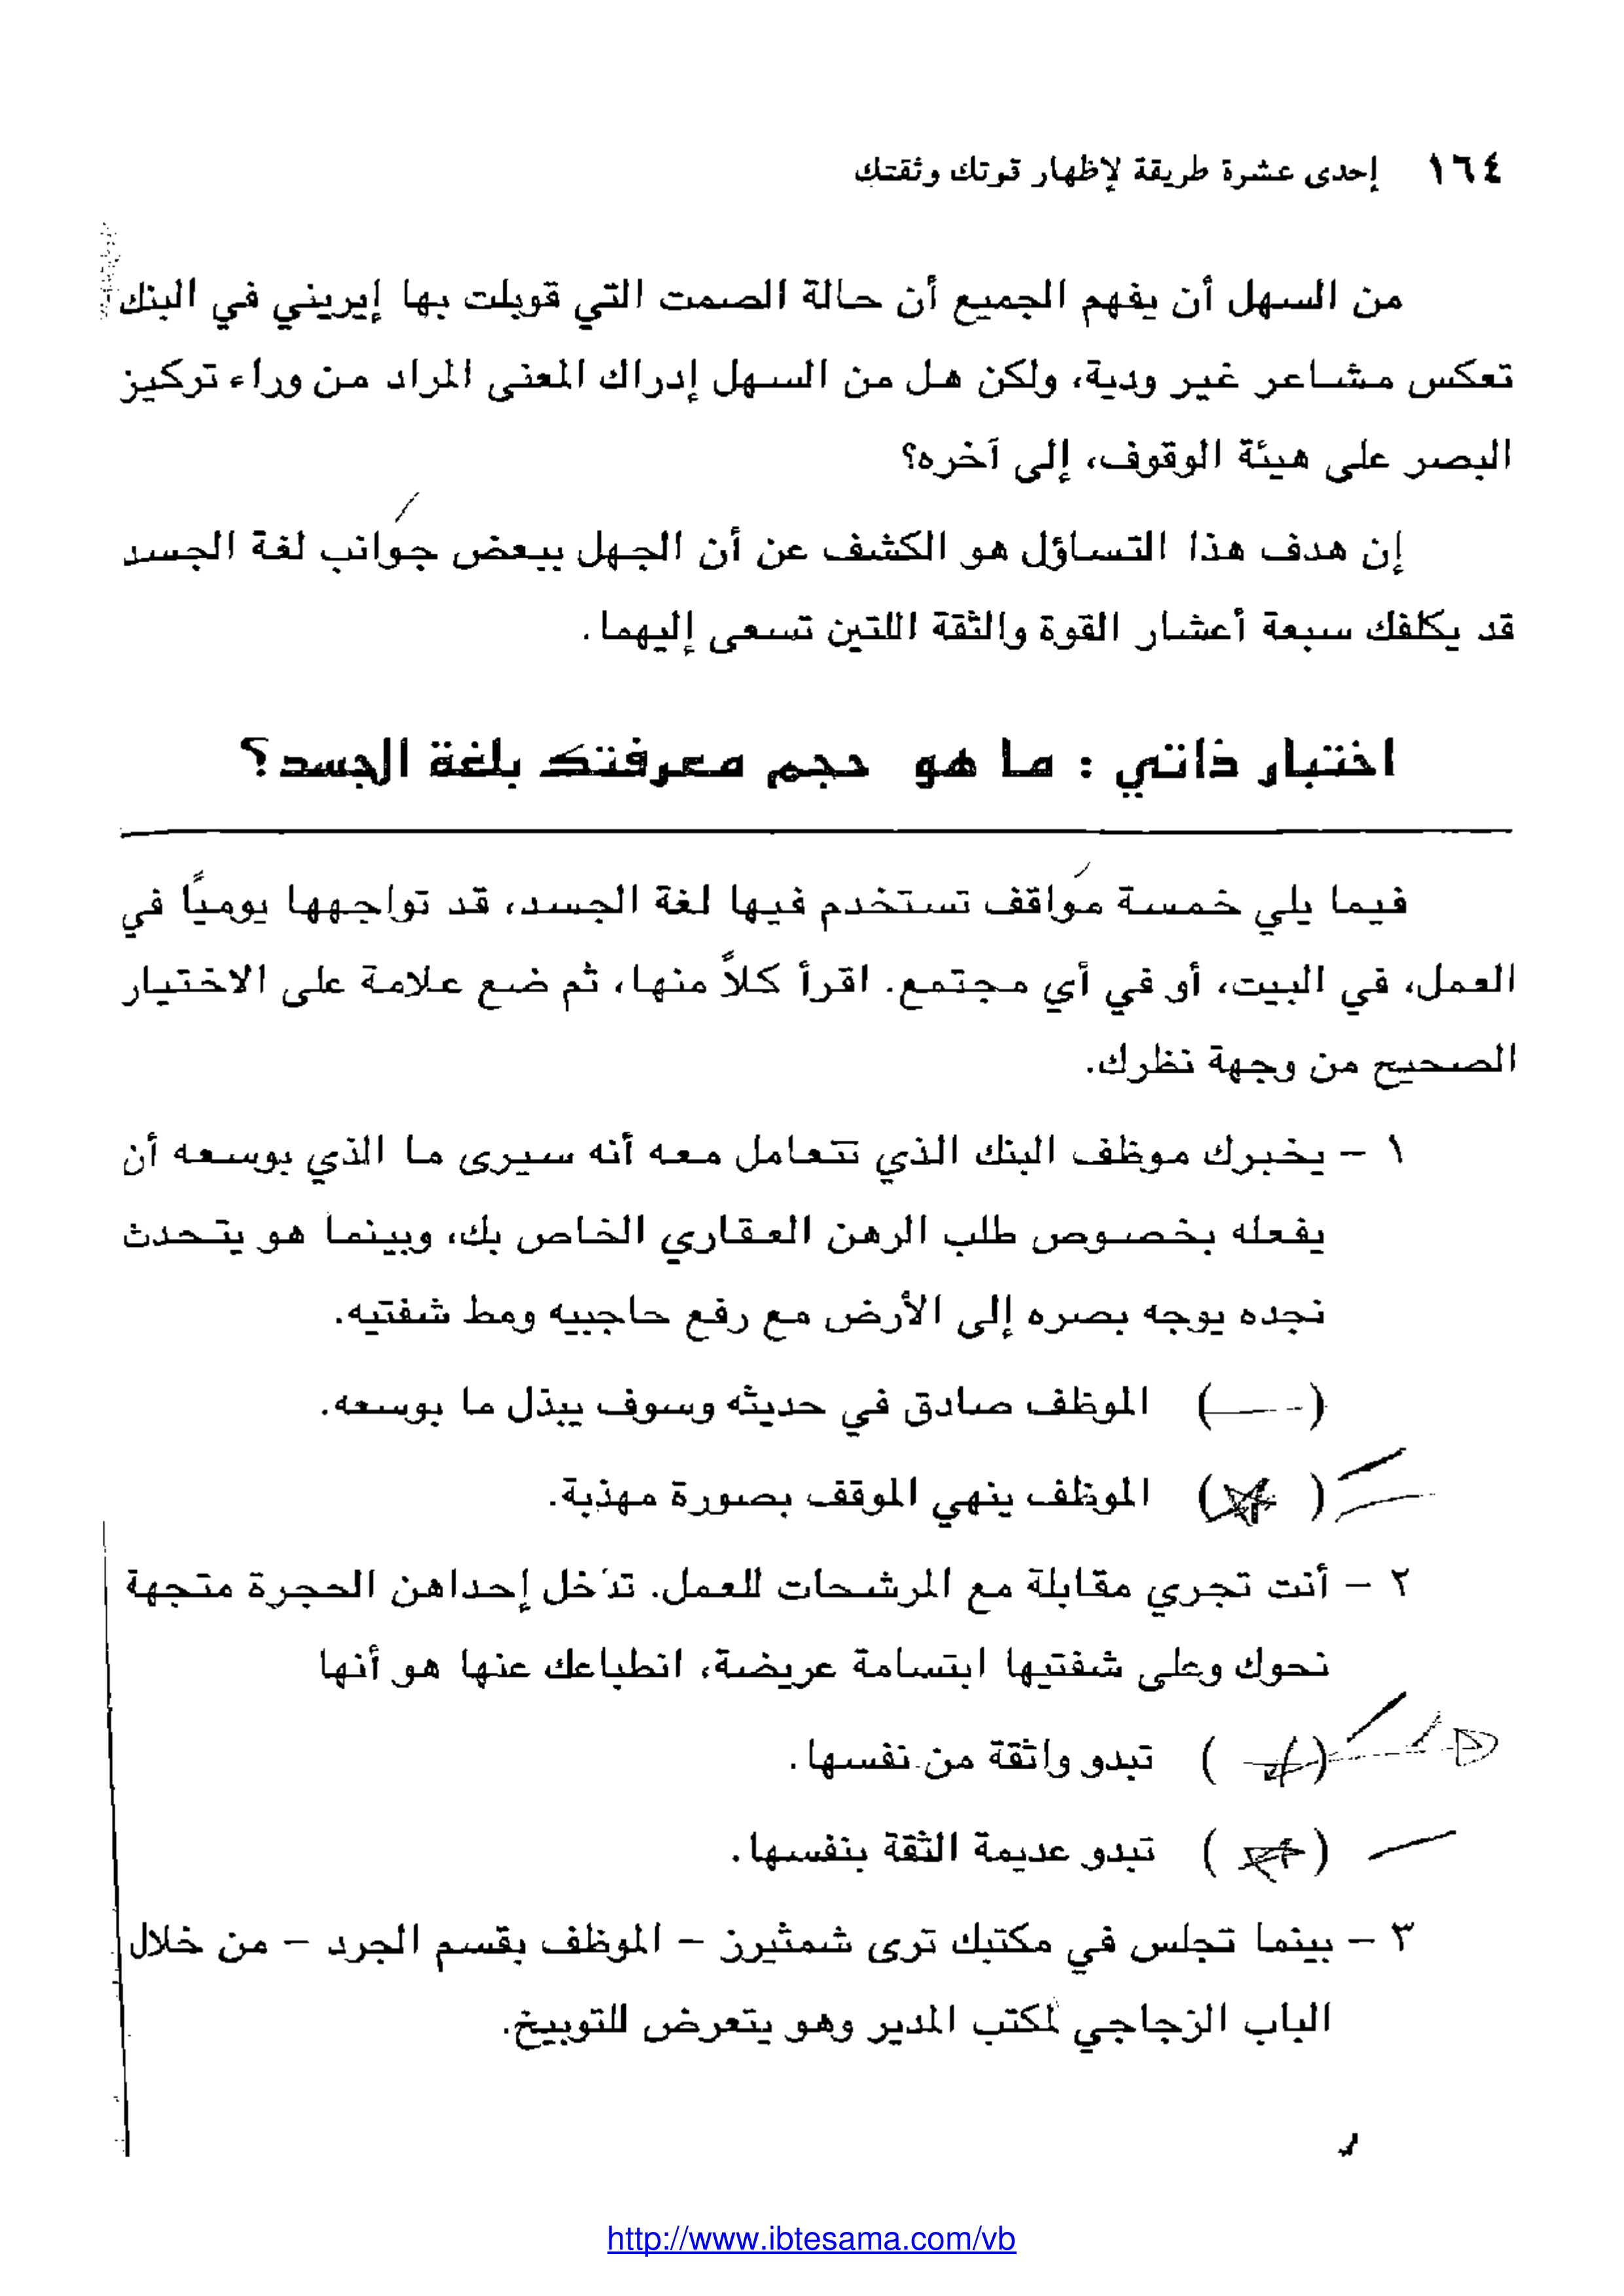 ١٦٤ إحدى عشرة طريقة لإظهار قوتك وثقتك
من السهل أن يفهم الجميع أن حالة الصمت التي قوبلت بها إيريني في البنك
تعكس مشاعر غير ودية، ولكن هل من السهل إدراك المعنى المراد من وراء تركيز
البصر على هيئة الوقوف، إلى آخره؟
إن هدف هذا التساؤل هو الكشف عن أن الجهل ببعض جوانب لغة الجسد
قد يكلفك سبعة أعشار القوة والثقة اللتين تسعى إليهما.
اختبار ذاتي : ما هو حجم معرفتك بلغة الجسد؟
فيما يلي خمسة مواقف تستخدم فيها لغة الجسد، قد تواجهها يومياً في
العمل، في البيت، أو في أي مجتمع. اقرأ كلاً منها، ثم ضع علامة على الاختيار
الصحيح من وجهة نظرك.
١ – يخبرك موظف البنك الذي تتعامل معه أنه سيرى ما الذي بوسعه أن
يفعله بخصوص طلب الرهن العقاري الخاص بك، وبينما هو يتحدث
تجده يوجه بصره إلى الأرض مع رفع حاجبيه ومط شفتيه.
( ) الموظف صادق في حديثه وسوف يبذل ما بوسعه.
( ) الموظف ينهي الموقف بصورة مهذبة.
٢ – أنت تجري مقابلة مع المرشحات للعمل. تدخل إحداهن الحجرة متجهة
نحوك وعلى شفتيها ابتسامة عريضة، انطباعك عنها هو أنها
( ) تبدو واثقة من نفسها.
( ) تبدو عديمة الثقة بنفسها.
٣ – بينما تجلس في مكتبك ترى شمثيرز – الموظف بقسم الجرد – من خلال
الباب الزجاجي لمكتب المدير وهو يتعرض للتوبيخ.
http://www.ibtesama.com/vb